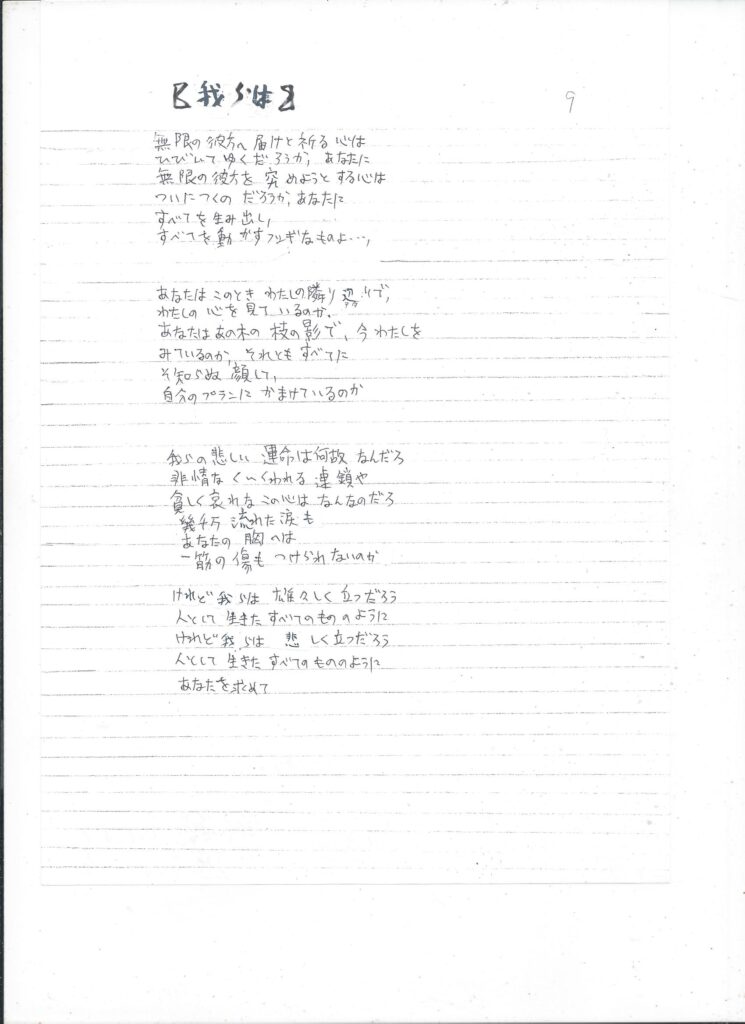 【我らは】
9
無限の彼方へ届けと祈る心は
ひびいてゆくだろうか、あなたに
無限の彼方を究めようとする心は
ついにつくのだろうか、あなたに
すべてを生み出し、
すべてを動かすフシギなものよ…、
あなたはこのときわたしの隣りで、
わたしの心を見ているのか、
あなたはあの木の枝の影で、今わたしを
みているのか、それともすべてに
そ知らぬ顔して、
自分のプランにかまけているのか
我らの悲しい運命は何故なんだろ
非情なくいくわれる連鎖や
貧しく哀れなこの心はなんなのだろ
幾千万流れた涙も
あなたの胸へは
一筋の傷もつけられないのか
けれど我らは雄々しく立つだろう
人として生きたすべてのもののように
けれど我らは悲しく立つだろう
人として生きたすべてのもののように
あなたを求めて